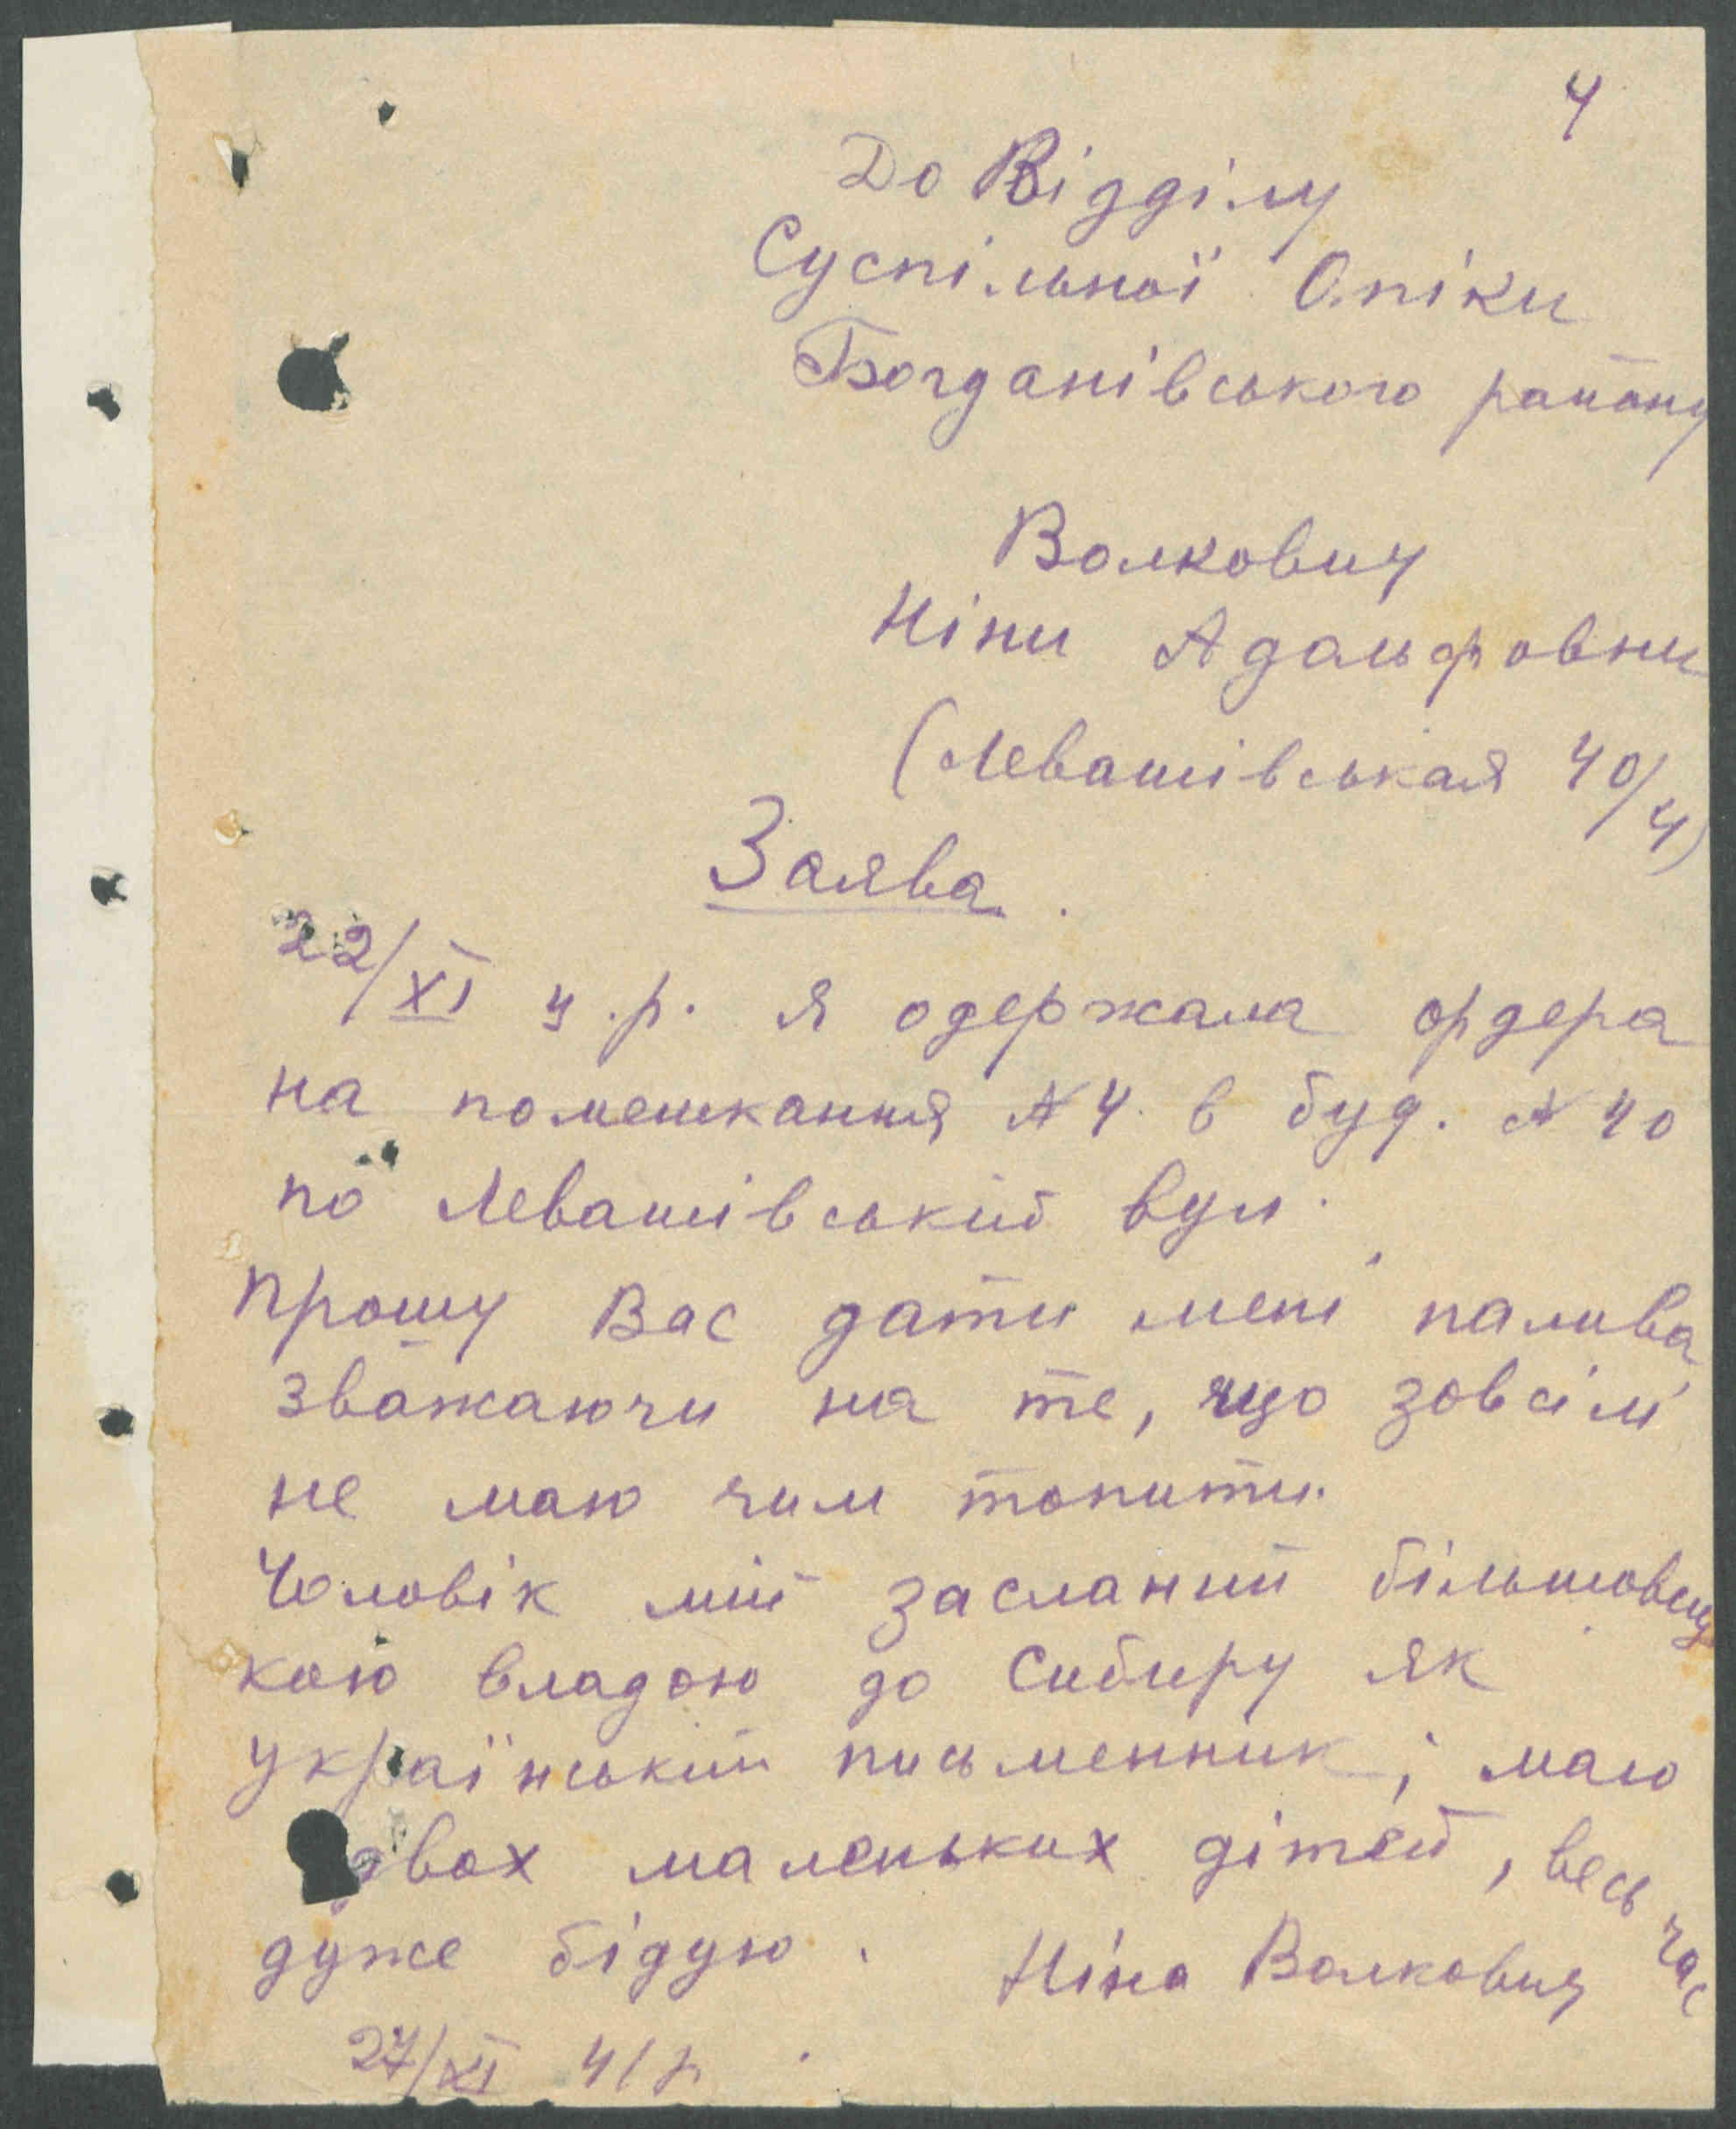 4
До Відділу
Суспільної Опіки
Богданівського району
Волкович
Ніни Адольфовни
(Левашівськая 40/4)
Заява.
22/XI ц.р. я одержала ордера
на помешкання №4 в буд. №40
по Левашівській вул.
Прошу Вас дати мені палива,
зважаючи на те, що зовсім
не маю чим топити.
Чоловік мій засланий більшовиц
кою владою до Сибиру як
український письменник; маю
двох маленьких дітей, весь час
дуже бідую. Ніна Волкович
27/XI 41 р.